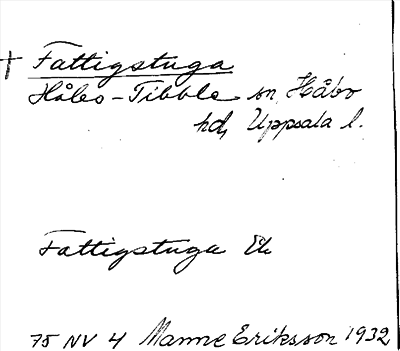 † Fattigstuga
Håbo-Tibble sn, Håbo
hd, Uppsala l.
Fattigstuga
75 NV 4 Manne Eriksson 1932